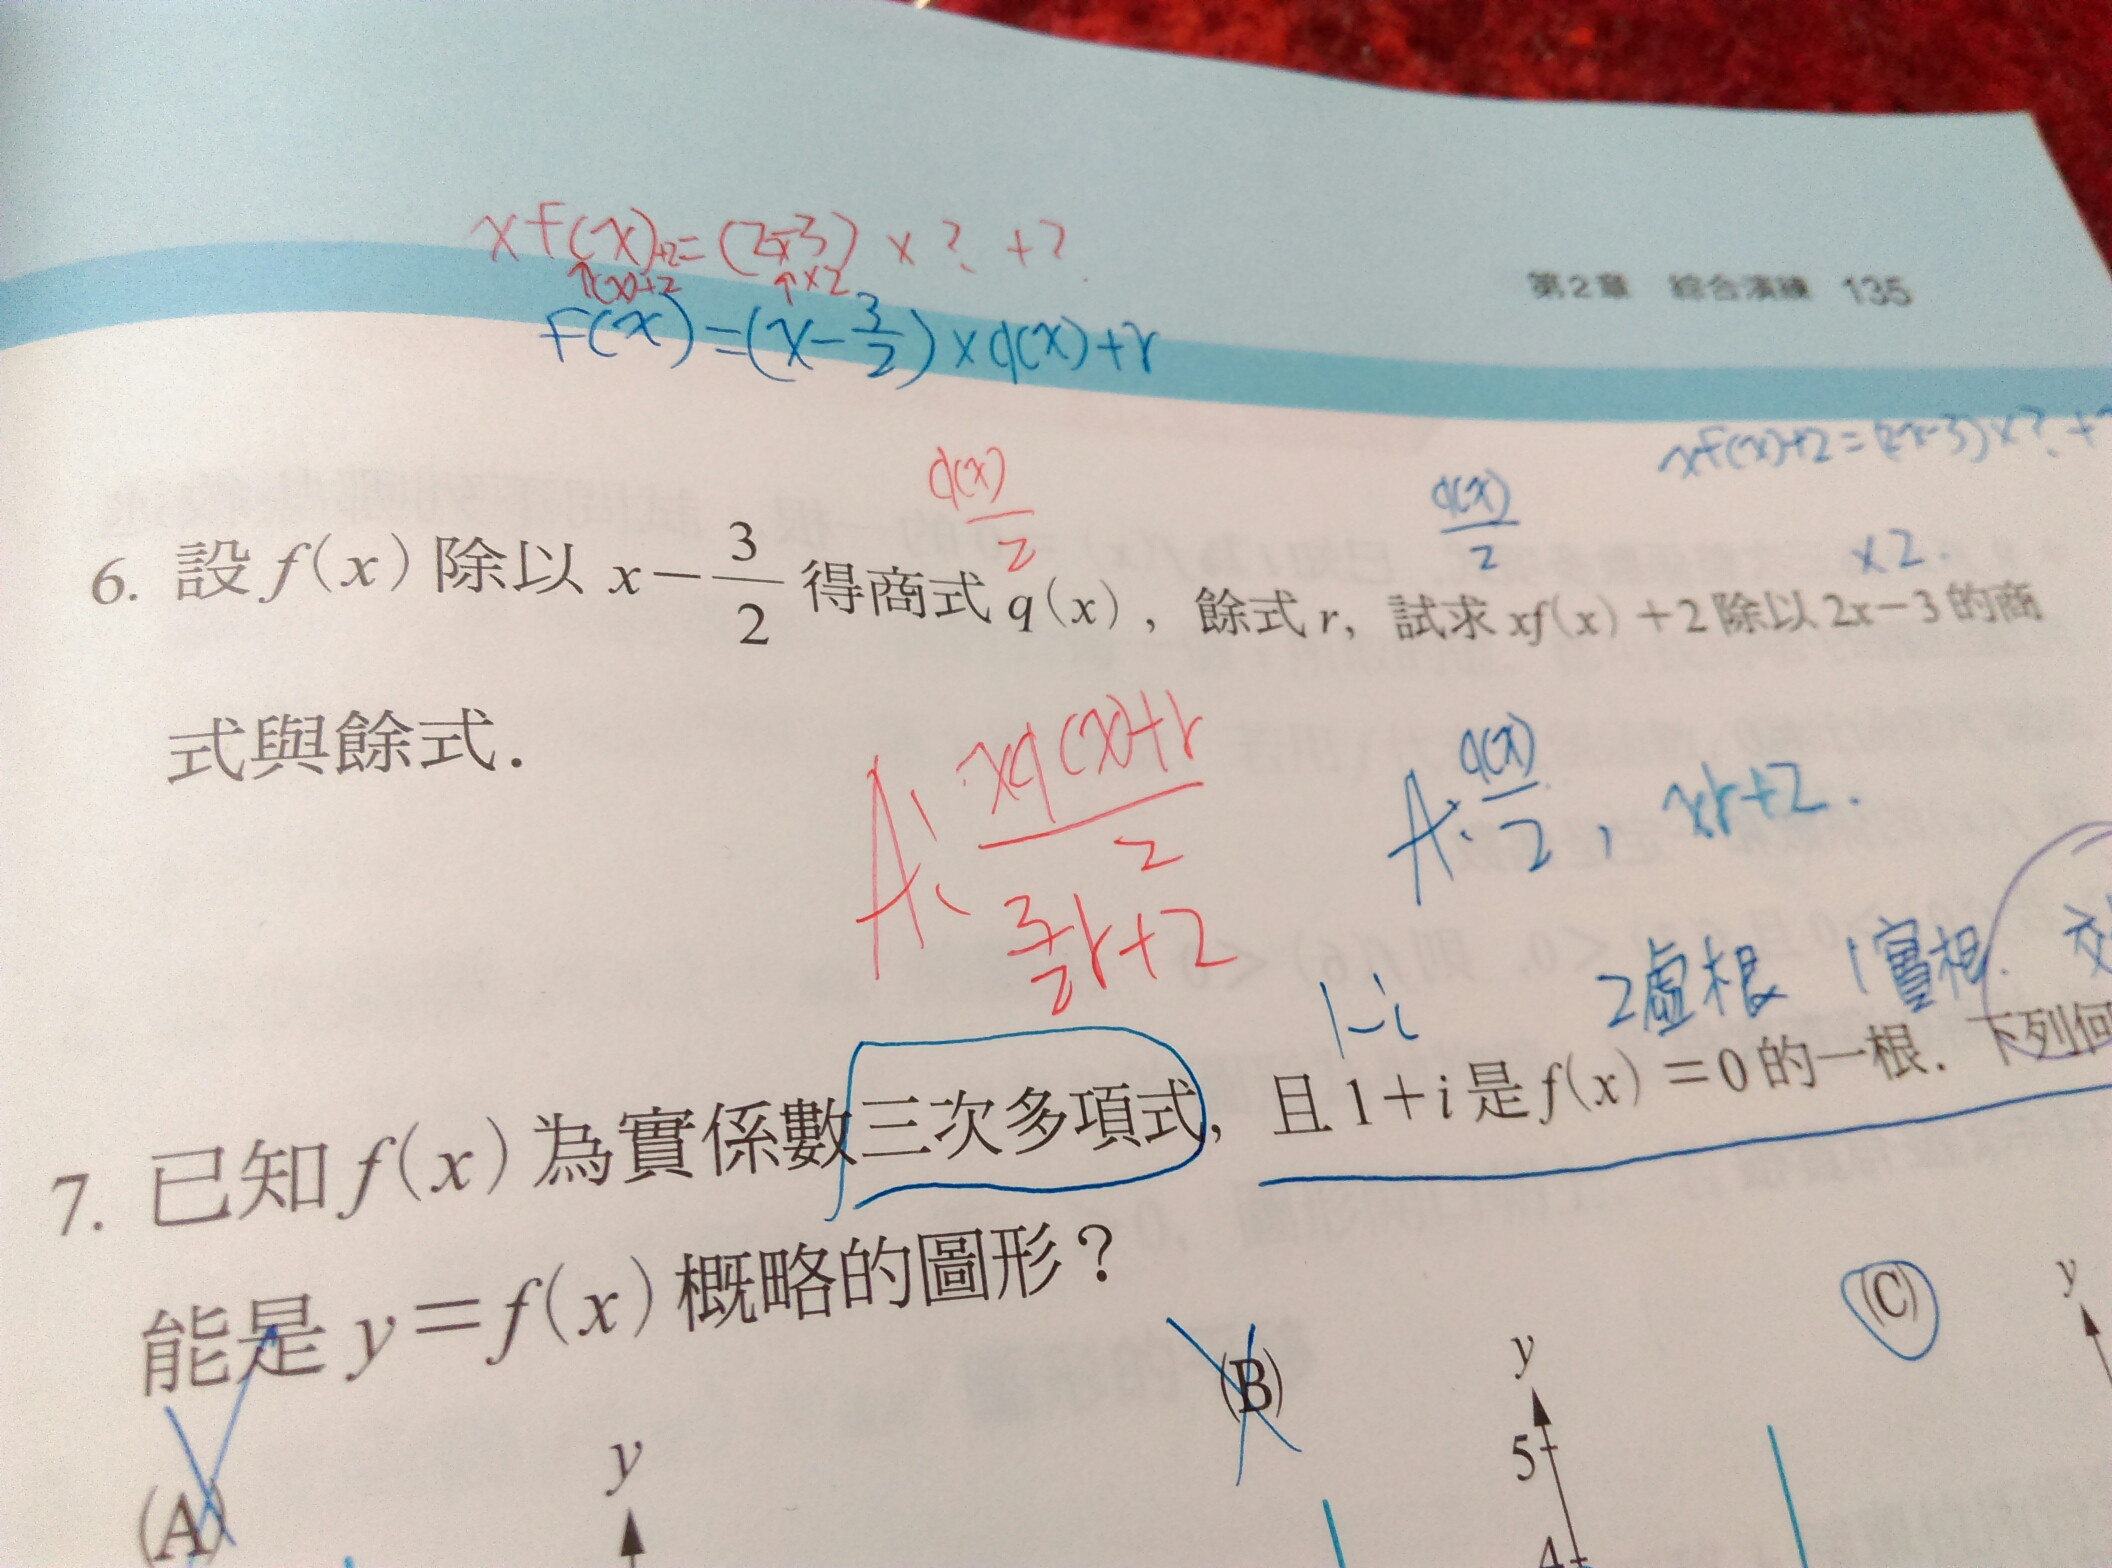 xf(x)+2=(2x-3)×?+?
↑(x)+2 ↑×2
第2章 綜合演練 135
f(x)=(x-3/2)×q(x)+r
xf(x)+2=(2x-3)×?+?
q(x)/2 q(x)/2 ×2.
6. 設 f(x) 除以 x-3/2 得商式 q(x), 餘式 r, 試求 xf(x)+2 除以 2x-3 的商
式與餘式.
A: (xq(x)+r)/2 A: q(x)/2, xr+2.
3/2r+2
1-i 2虛根 1實根. 交
7. 已知 f(x) 為實係數三次多項式, 且 1+i 是 f(x)=0 的一根. 下列何
能是 y=f(x) 概略的圖形?
(A) y (B) y (C) y
5
4